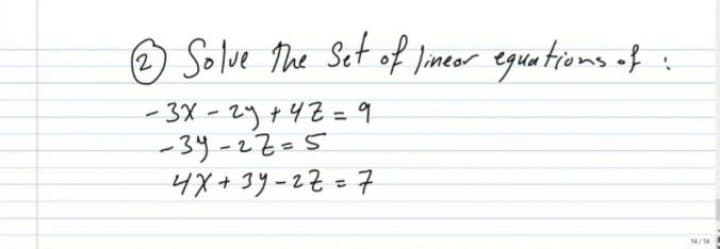 ② Solve The Set of linear equations of :
-3x - 2y + 4z = 9
-3y - 2z = 5
4x + 3y - 2z = 7